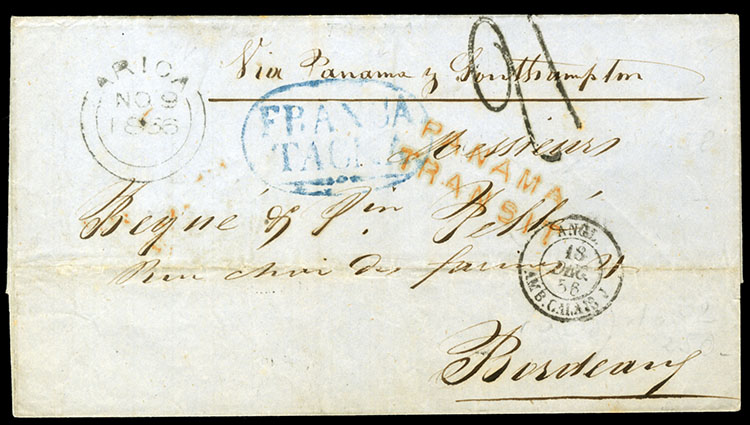 ARICA
NO 9
1856
Via Panama y Southampton
FRANCA
TACNA
PANAMA
TRANSIT
Messieurs
Begué &
Rue
des
ANGL.
18
DEC.
56
AMB. CALAIS
Bordeaux